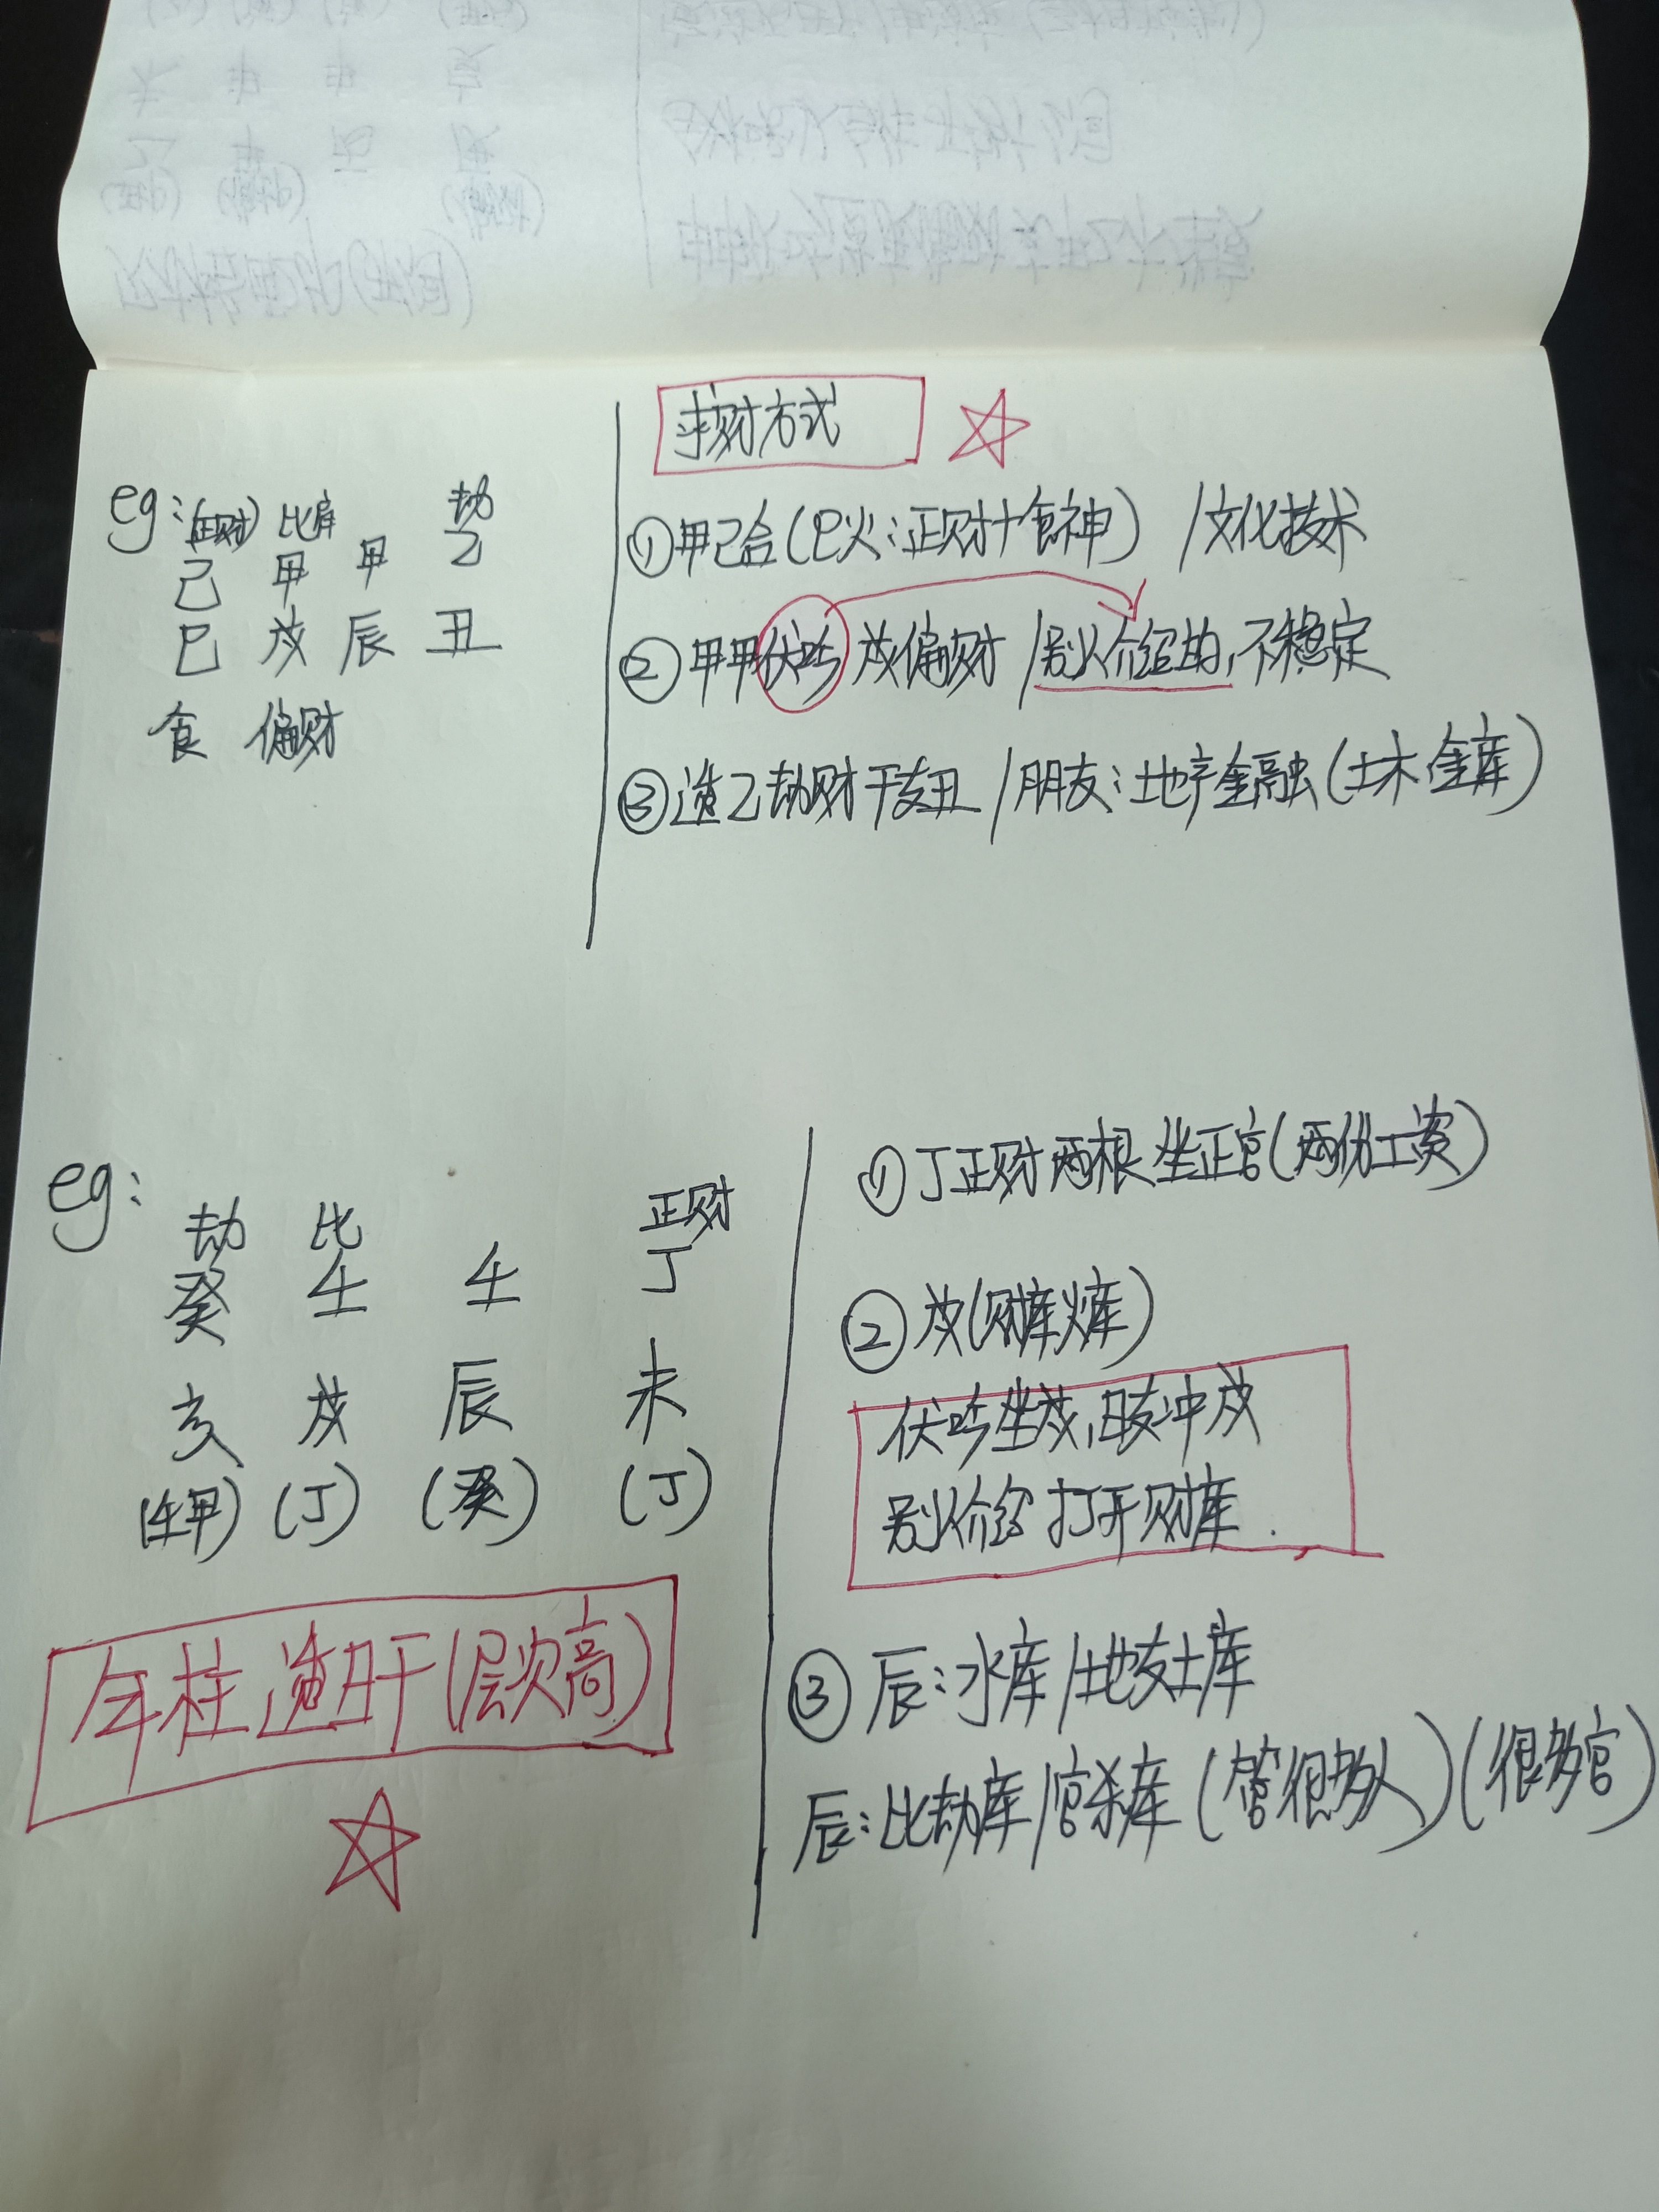 求财方式
eg: (正财) 比肩 劫
己 甲 甲 乙
巳 戌 辰 丑
食 偏财
①甲己合(巳火:正财+食神) /文化技术
②甲甲伏吟 戌偏财 /别人介绍的,不稳定
③透乙劫财干支丑 /朋友:地产金融(土木 金库)
eg:
劫 比 正财
癸 壬 壬 丁
亥 戌 辰 未
(壬甲) (丁) (癸) (丁)
年柱透月干(层次高)
①丁正财两根 坐正官(两份工资)
②戌(财库火库)
伏吟坐戌,日支冲戌
别人介绍 打开财库.
③辰:水库/地支土库
辰:比劫库/官杀库(管很多人)(很多官)